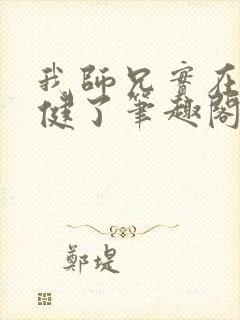 我師兄實在
健了筆趣閣
鄭堤